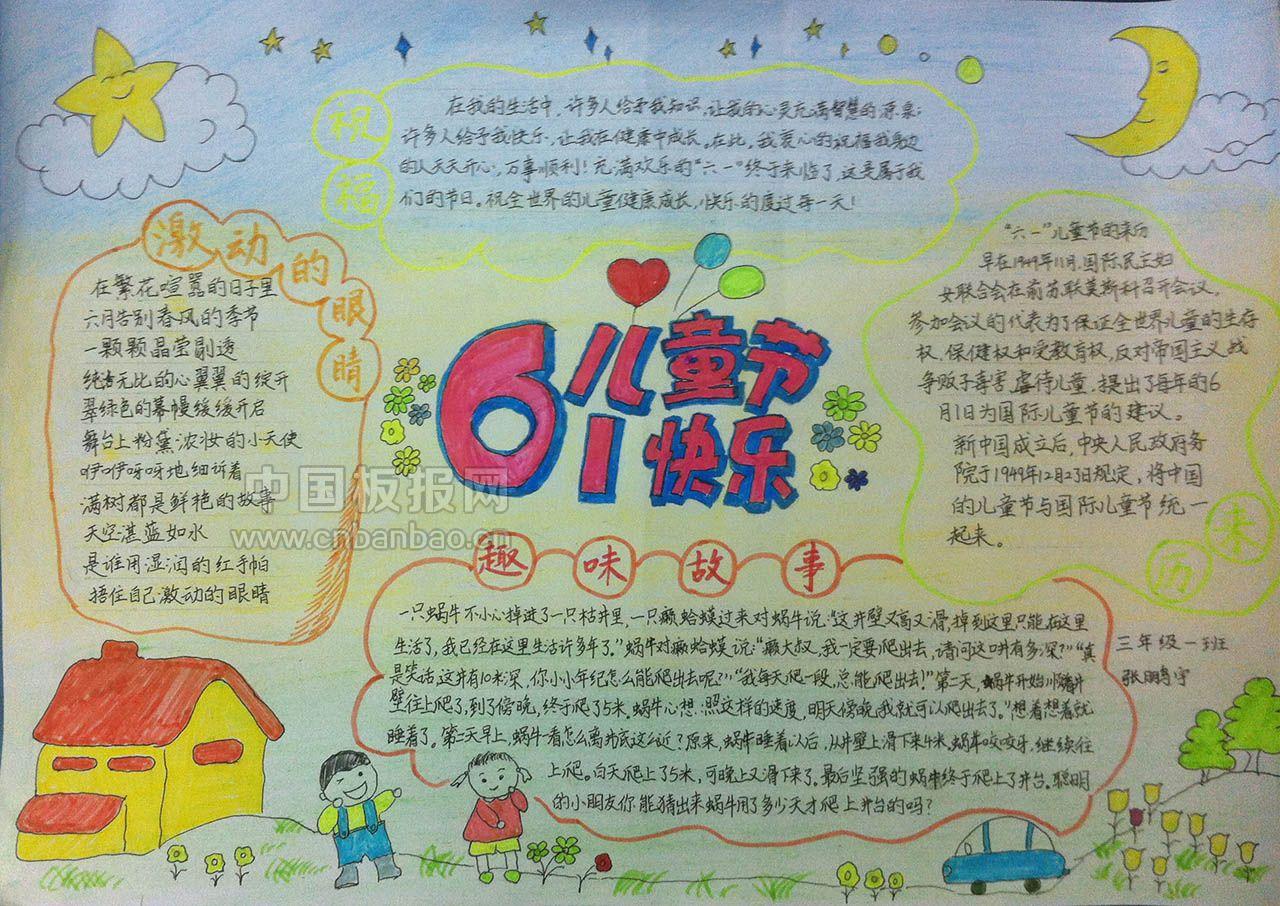 祝福
在我的生活中，许多人给予我知识，让我的心灵充满智慧的源泉；
许多人给予我快乐，让我在健康中成长。在此，我衷心的祝福我身边
的人天天开心，万事顺利！充满欢乐的“六一”终于来临了，这是属于我
们的节日。祝全世界的儿童健康成长，快乐的度过每一天！
激动的眼睛
在繁花喧嚣的日子里
六月告别春风的季节
一颗颗晶莹剔透
纯洁无比的心翼翼的绽开
翠绿色的幕幔缓缓开启
舞台上粉黛浓妆的小天使
咿咿呀呀地细诉着
满树都是鲜艳的故事
天空湛蓝如水
是谁用湿润的红手帕
捂住自己激动的眼睛
61儿童节
快乐
“六一”儿童节的来历
早在1949年11月，国际民主妇
女联合会在前苏联莫斯科召开会议，
参加会议的代表为了保证全世界儿童的生存
权，保健权和受教育权，反对帝国主义战
争贩子毒害虐待儿童，提出了每年的6
月1日为国际儿童节的建议。
新中国成立后，中央人民政府务
院于1949年12月23日规定，将中国
的儿童节与国际儿童节统一
起来。
来历
趣味故事
一只蜗牛不小心掉进了一只枯井里，一只癞蛤蟆过来对蜗牛说：“这井壁又高又滑，掉到这里只能在这里
生活了，我已经在这里生活许多年了。”蜗牛对癞蛤蟆说：“癞大叔，我一定要爬出去，请问这口井有多深？”“真
是笑话，这井有10米深，你小小年纪怎么能爬出去呢？”“我每天爬一段，总能爬出去！”第二天，蜗牛开始顺着井
壁往上爬了，到了傍晚，终于爬了5米。蜗牛心想：照这样的速度，明天傍晚，我就可以爬出去了。”想着想着就
睡着了。第二天早上，蜗牛看怎么离井底这么近？原来，蜗牛睡着以后，从井壁上滑下来4米。蜗牛咬咬牙，继续往
上爬。白天爬上了5米，可晚上又滑下来了。最后坚强的蜗牛终于爬上了井台。聪明
的小朋友你能猜出来蜗牛用了多少天才爬上井台的吗？
三年级一班
张鹏宇
中国板报网
www.cnbanbao.cn